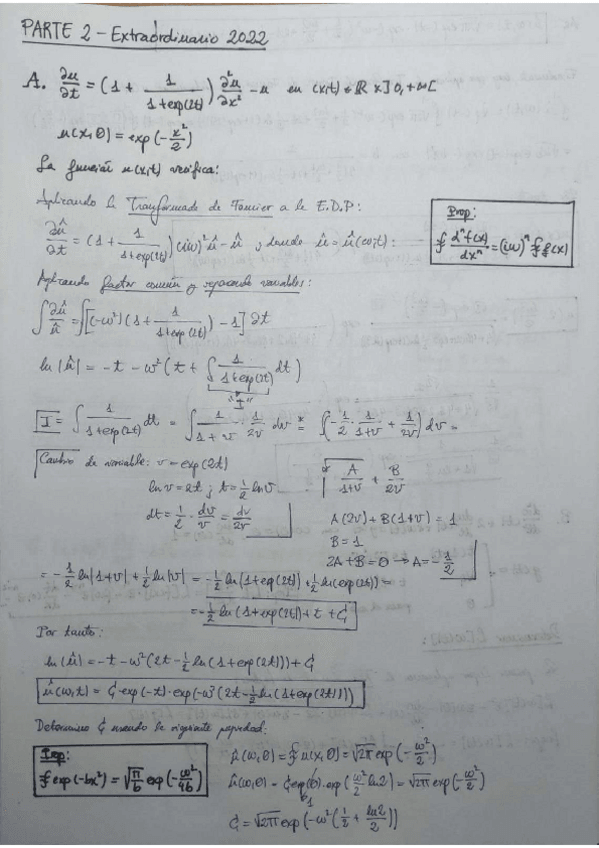 PARTE 2 - Extraordinario 2022
A. ∂u/∂t = (1 + 1/(1+exp(2t))) ∂²u/∂x² - u en (x,t) ∈ ℝ x ]0,+∞[
u(x,0) = exp(-x²/2)
La función u(x,t) verifica:
Aplicando la Transformada de Fourier a la E.D.P:
∂û/∂t = (1 + 1/(1+exp(2t))) (iω)² û - û, donde û = û(ω,t):
Prop:
𝓕 dⁿf(x)/dxⁿ = (iω)ⁿ 𝓕f(x)
Aplicando factor común y separando variables:
∫ ∂û/û = ∫[(-ω²)(1 + 1/(1+exp(2t))) - 1] ∂t
ln|û| = -t - ω²(t + ∫ 1/(1+exp(2t)) dt)
"I"
I = ∫ 1/(1+exp(2t)) dt = ∫ 1/(1+v) · 1/2v dv *= ∫(-1/2 · 1/(1+v) + 1/2v) dv =
Cambio de variable: v = exp(2t)
ln v = 2t ; t = 1/2 ln v
dt = 1/2 · dv/v = dv/2v
A/(1+v) + B/2v
A(2v) + B(1+v) = 1
B = 1
2A + B = 0 → A = -1/2
= -1/2 ln|1+v| + 1/2 ln|v| = -1/2 ln(1+exp(2t)) + 1/2 ln(exp(2t)) =
= -1/2 ln(1+exp(2t)) + t + C
Por tanto:
ln(û) = -t - ω²(2t - 1/2 ln(1+exp(2t))) + C
û(ω,t) = C exp(-t) · exp(-ω²(2t - 1/2 ln(1+exp(2t))))
Determino C usando la siguiente propiedad:
Prop:
𝓕 exp(-bx²) = √(π/b) exp(-ω²/4b)
û(ω,0) = 𝓕 u(x,0) = √2π exp(-ω²/2)
û(ω,0) = C exp(0) · exp(ω²/2 ln2) = √2π exp(-ω²/2)
1
C = √2π exp(-ω²(1/2 + ln2/2))